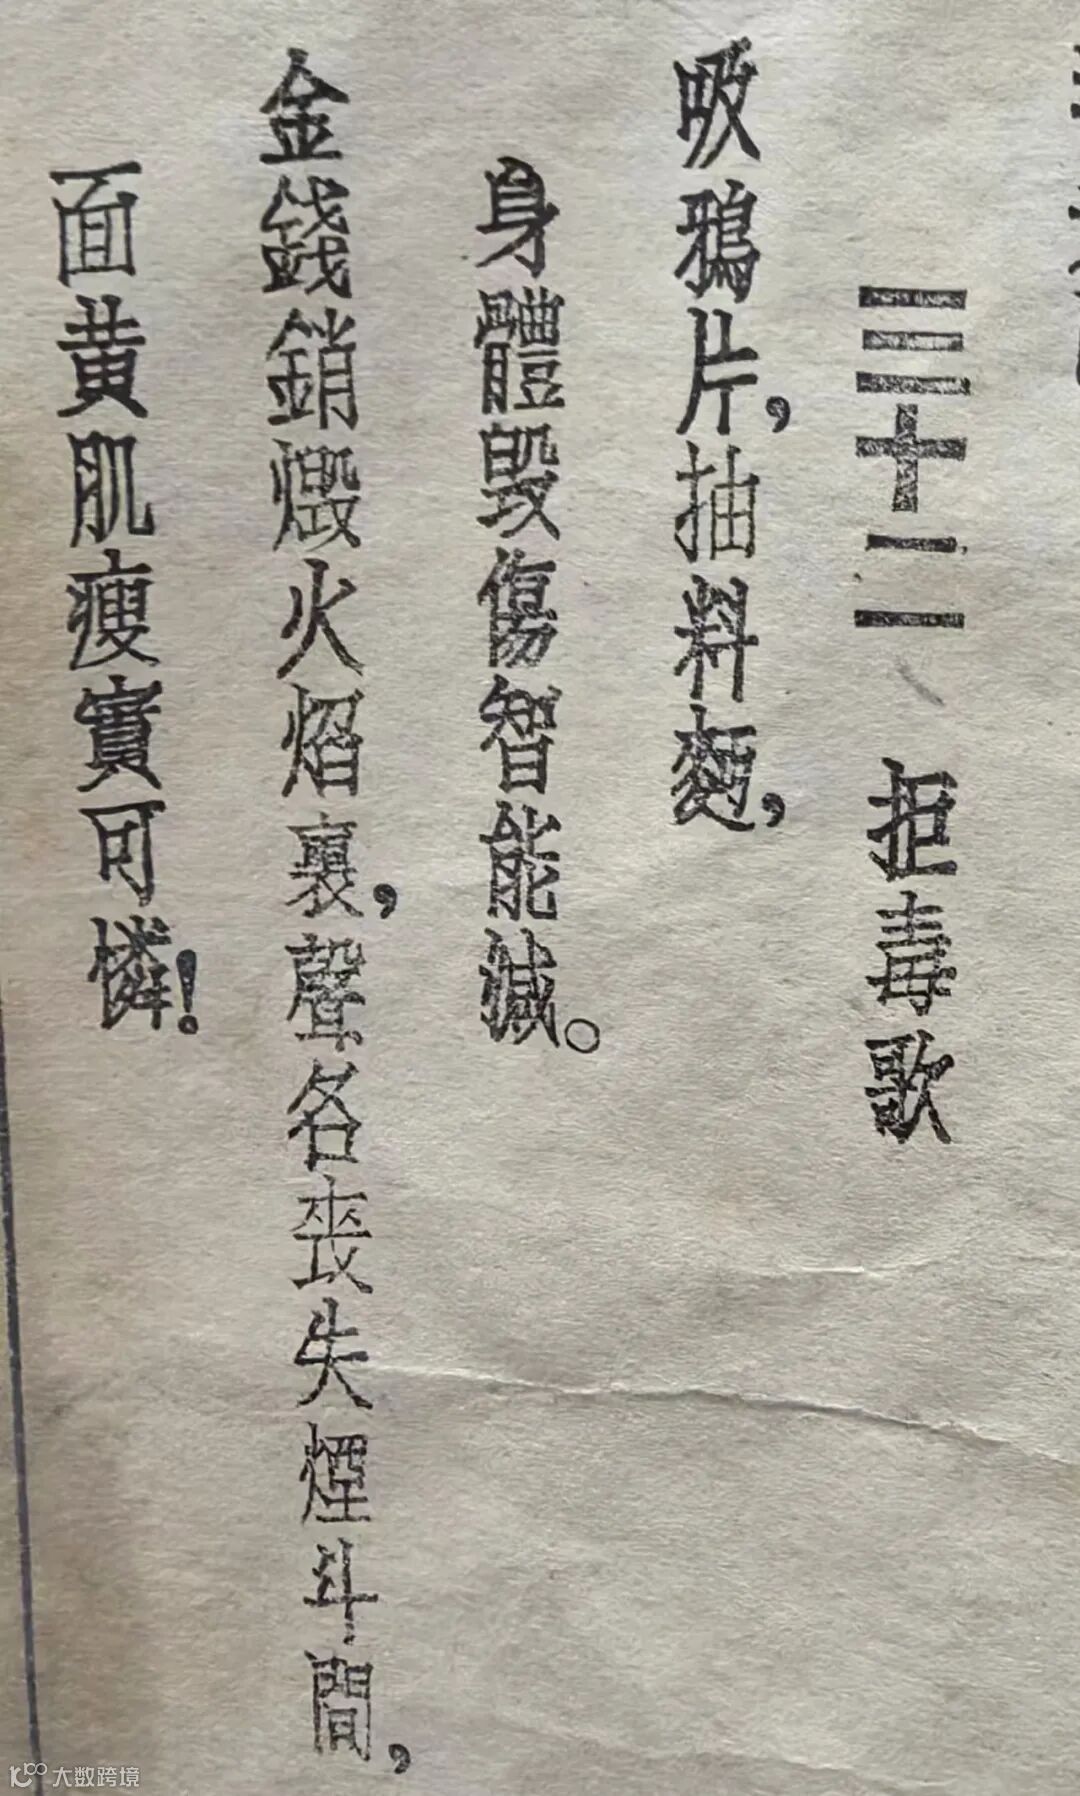 三十二 拒毒歌
吸鴉片,抽料麪,
身體毀傷智能減。
金錢銷燬火焰裏,聲名喪失煙斗間,
面黃肌瘦實可憐!
大数跨境